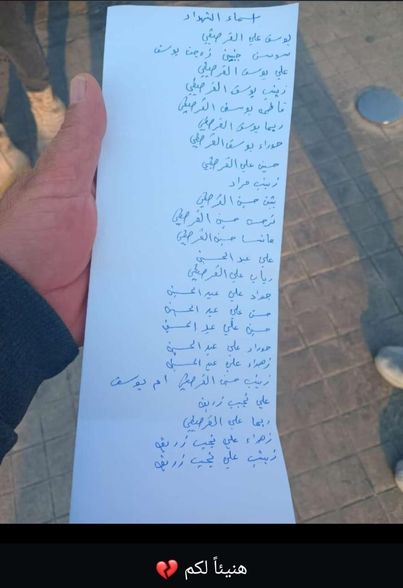 اسماء الشهداء
يوسف علي القرصيفي
سوسن زوجة يوسف
علي يوسف القرصيفي
زينب يوسف القرصيفي
فاطمة يوسف القرصيفي
ريما يوسف القرصيفي
حوراء يوسف القرصيفي
حسين علي القرصيفي
زينب مراد
حسين القرصيفي
نرجس حسين القرصيفي
حسين القرصيفي
علي عبد الحسين
رباب علي القرصيفي
جواد علي عبد الحسين
حسن علي عبد الحسين
حسين علي عبد الحسين
حوراء علي عبد الحسين
زهراء علي عبد الحسين
زينب القرصيفي ام يوسف
علي نجيب زريق
ريما علي القرصيفي
زهراء علي نجيب زريق
زينب علي نجيب زريق
هنيئاً لكم 💔